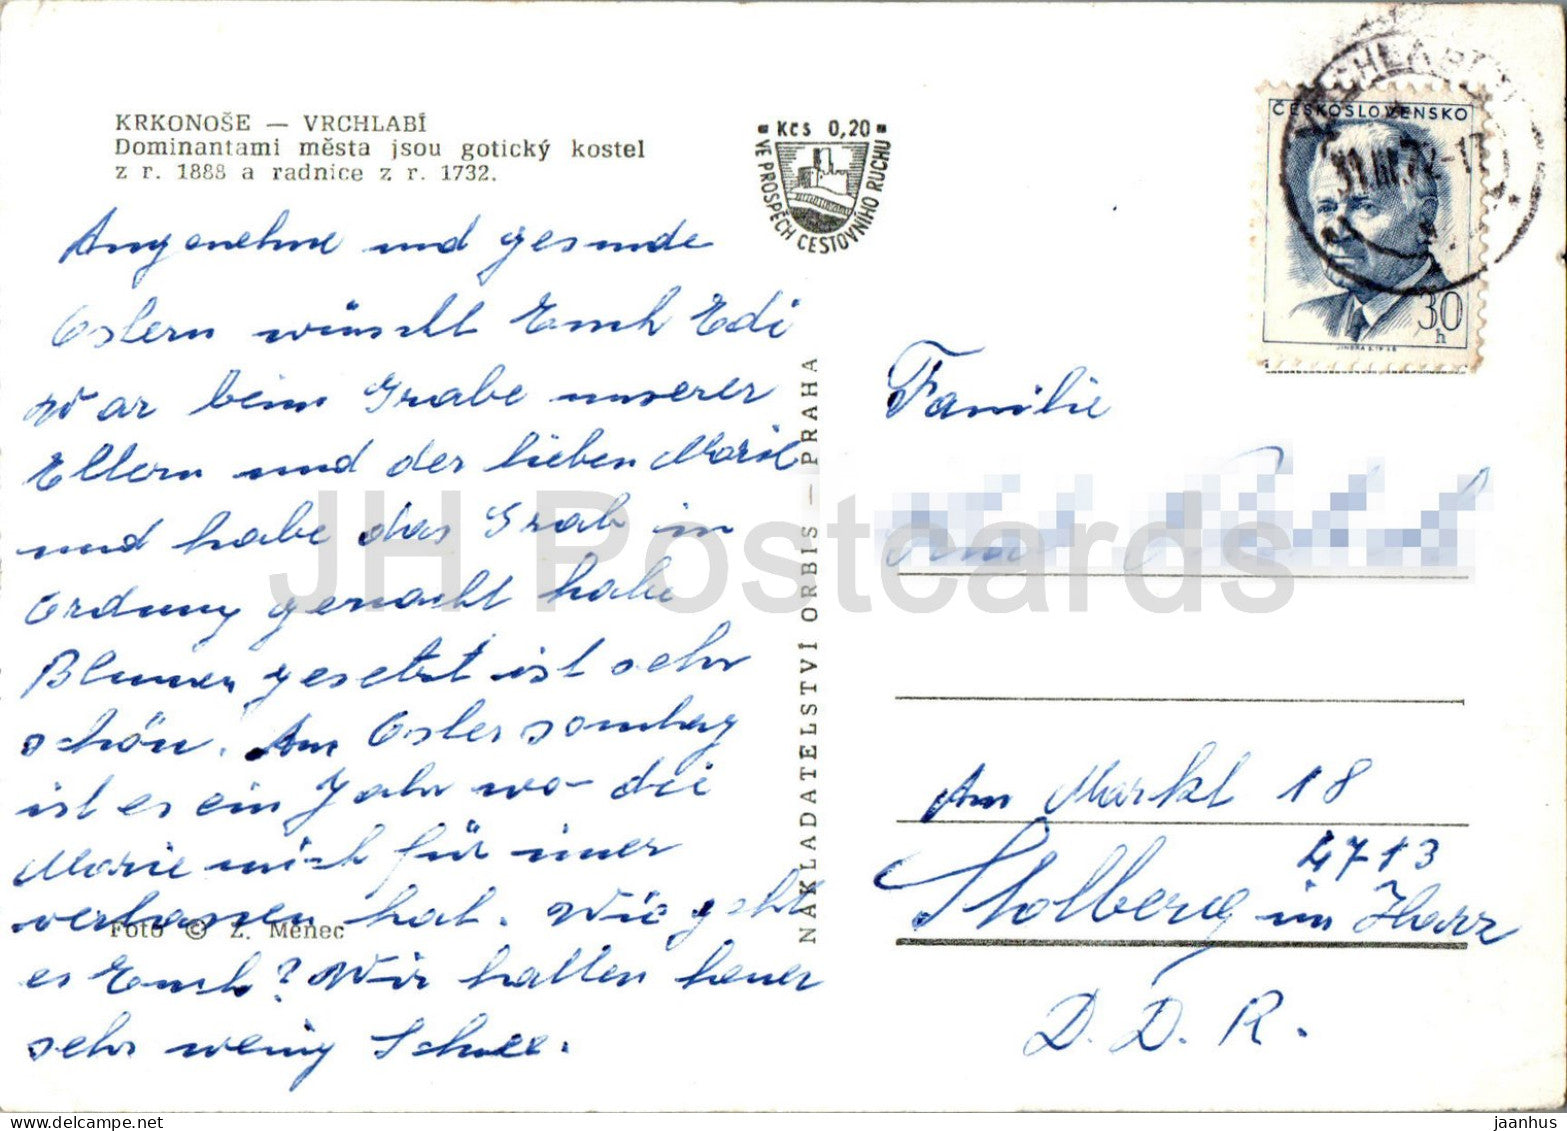 KRKONOŠE — VRCHLABÍ
Dominantami města jsou gotický kostel
z r. 1888 a radnice z r. 1732.
Kčs 0,20
VE PROSPĚCH CESTOVNÍHO RUCHU
ČESKOSLOVENSKO
31.III.72-17
30
h
Angenehme und gesunde
Ostern wünscht Euch Edi
War beim Grabe unserer
Eltern und der lieben Marie
und habe das Grab in
Ordnung gemacht habe
Blumen gesetzt ist sehr
schön. Am Ostersonntag
ist es ein Jahr wo die
Marie mich für imer
verlassen hat. Wie geht
es Euch? Wir hatten heuer
sehr wenig Schnee.
Foto © Z. Menec
NAKLADATELSTVÍ ORBIS — PRAHA
Familie
Am Markt 18
4713
Stolberg im Harz
D. D. R.
JH Postcards
jaanhus